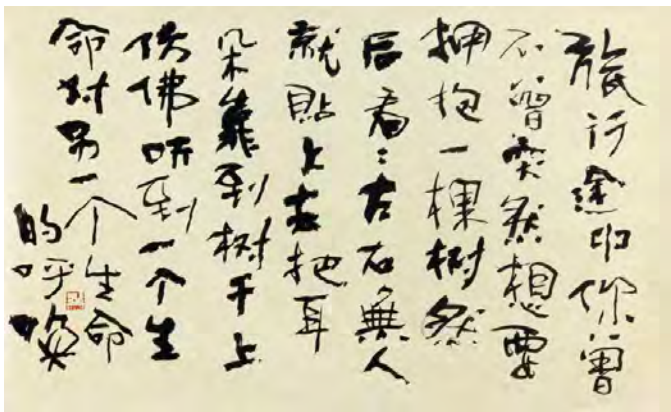 旅行途中你曾
不曾突然想要
拥抱一棵树然
后看々左右無人
就貼上去把耳
朵靠到树干上
仿佛听到一个生
命对另一个生命
的呼唤